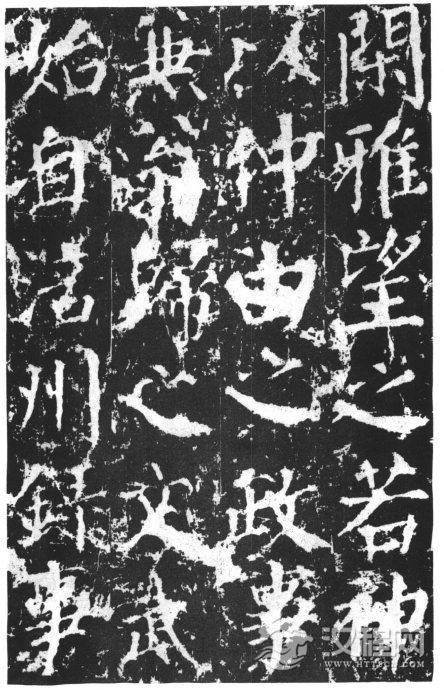 閑雅望之若神
以仲由之政事
兼翁歸之文武
始自涪州錄事
汉程网
WWW.HTTPCN.COM